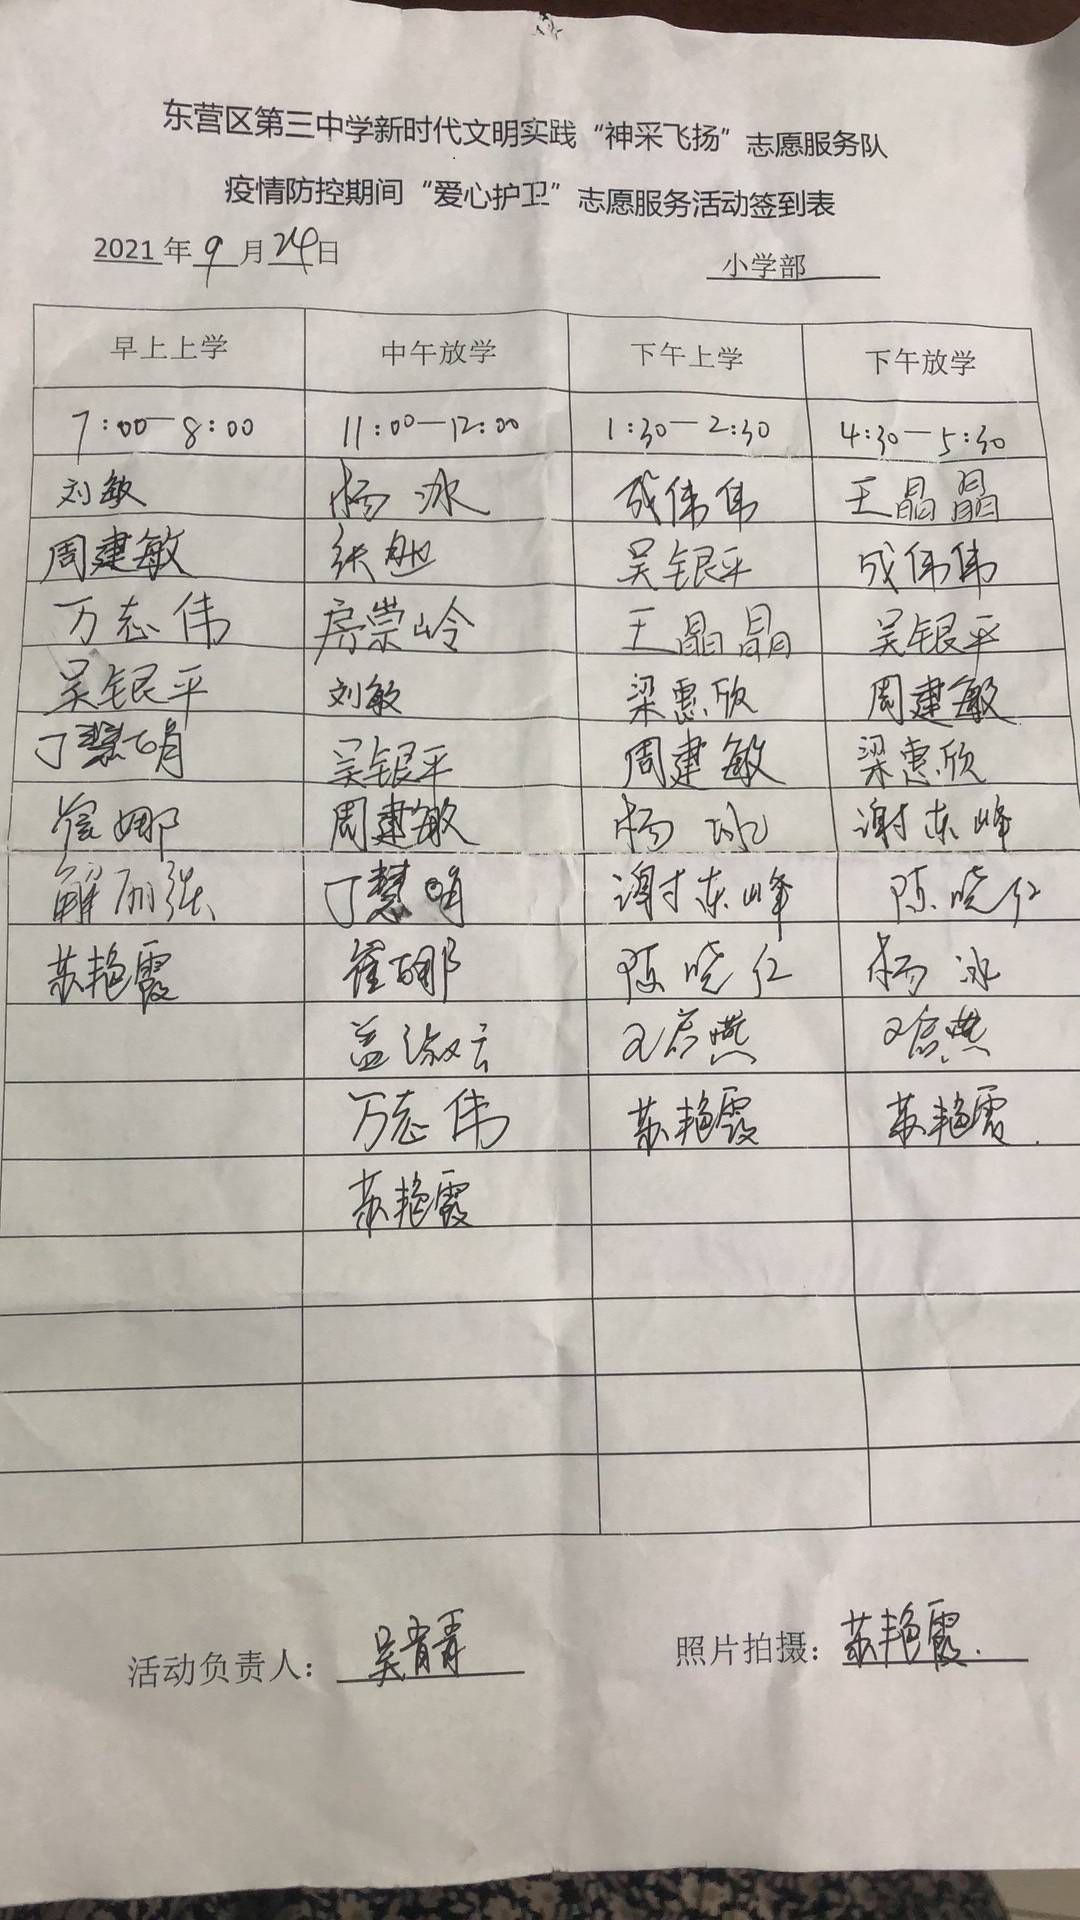 东营区第三中学新时代文明实践“神采飞扬”志愿服务队
疫情防控期间“爱心护卫”志愿服务活动签到表
2021年9月24日 小学部
早上上学 中午放学 下午上学 下午放学
7:00—8:00 11:00—12:00 1:30—2:30 4:30—5:30
刘敏 杨冰 成伟伟 王晶晶
周建敏 张旭 吴银平 成伟伟
万志伟 房崇岭 王晶晶 吴银平
吴银平 刘敏 梁惠欣 周建敏
丁慧娟 吴银平 周建敏 梁惠欣
娜 周建敏 杨冰 谢东峰
解丽张 丁慧娟 谢东峰 陈晓仁
苏艳霞 崔娜 陈晓仁 杨冰
盖淑云 燕 燕
万志伟 苏艳霞 苏艳霞
苏艳霞
活动负责人：吴青青 照片拍摄：苏艳霞.